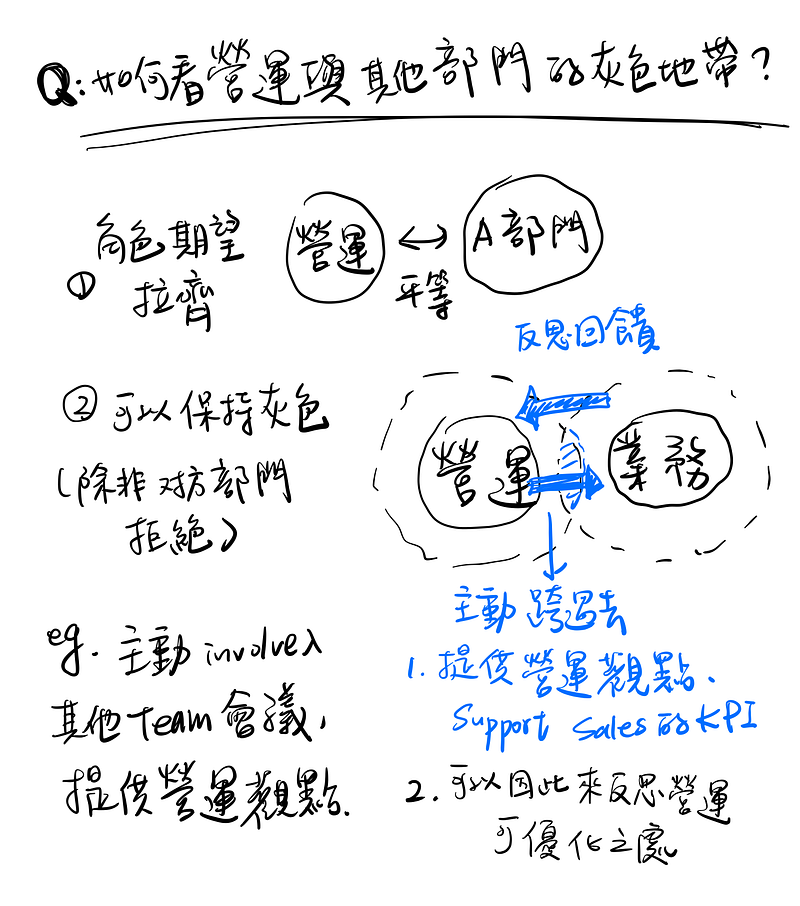 Q:如何看營運與其他部門的灰色地帶?
角色期望
① 拉齊
營運 ↔ A部門
平等
反思回饋
② 可以保持灰色
(除非对方部門
拒絕)
營運
業務
主動跨過去
1. 提供營運觀點、
Support Sales的KPI
2. 可以因此來反思營運
可優化之處
eg. 主動involve入
其他Team會議,
提供營運觀點.